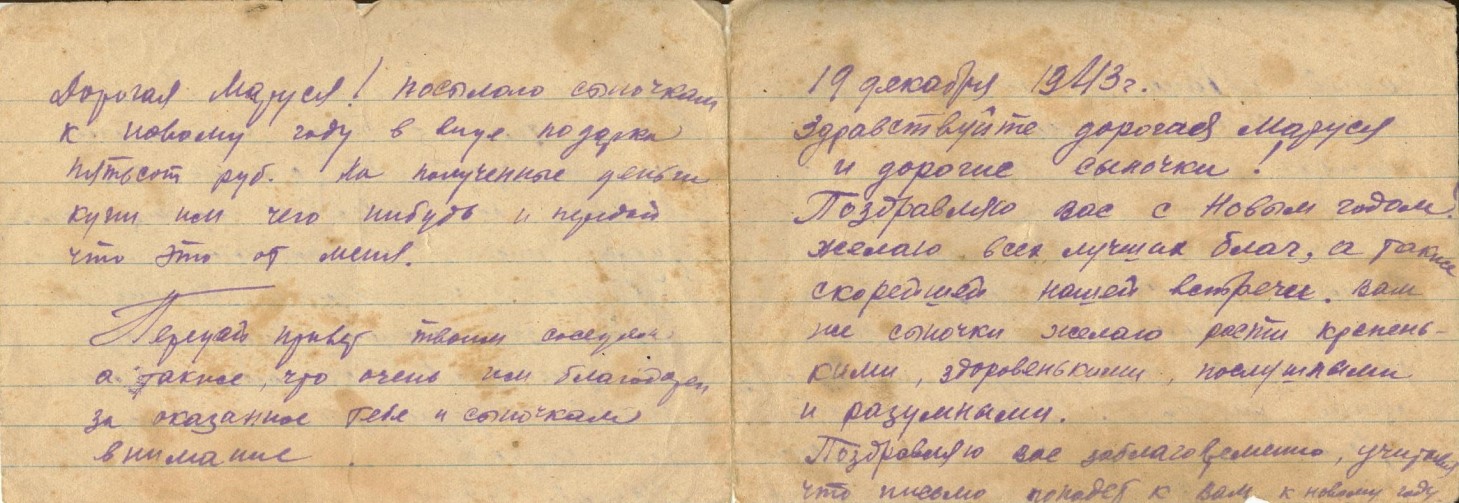 Дорогая Маруся! посылаю сыночкам
к новому году в виде подарка
пятьсот руб. На полученные деньги
купи им чего нибудь и передай
что это от меня.
Передай привет твоим соседям
а также, что очень им благодарен
за оказанное тебе и сыночкам
внимание
19 декабря 1943 г.
Здравствуйте дорогая Маруся
и дорогие сыночки!
Поздравляю вас с Новым годом.
желаю всех лучших благ, а также
скорейшей нашей встречи. Вам
же сыночки желаю рости крепень-
кими, здоровенькими, послушными
и разумными.
Поздравляю вас заблаговременно, учитывая
что письмо попадет к вам к новому году